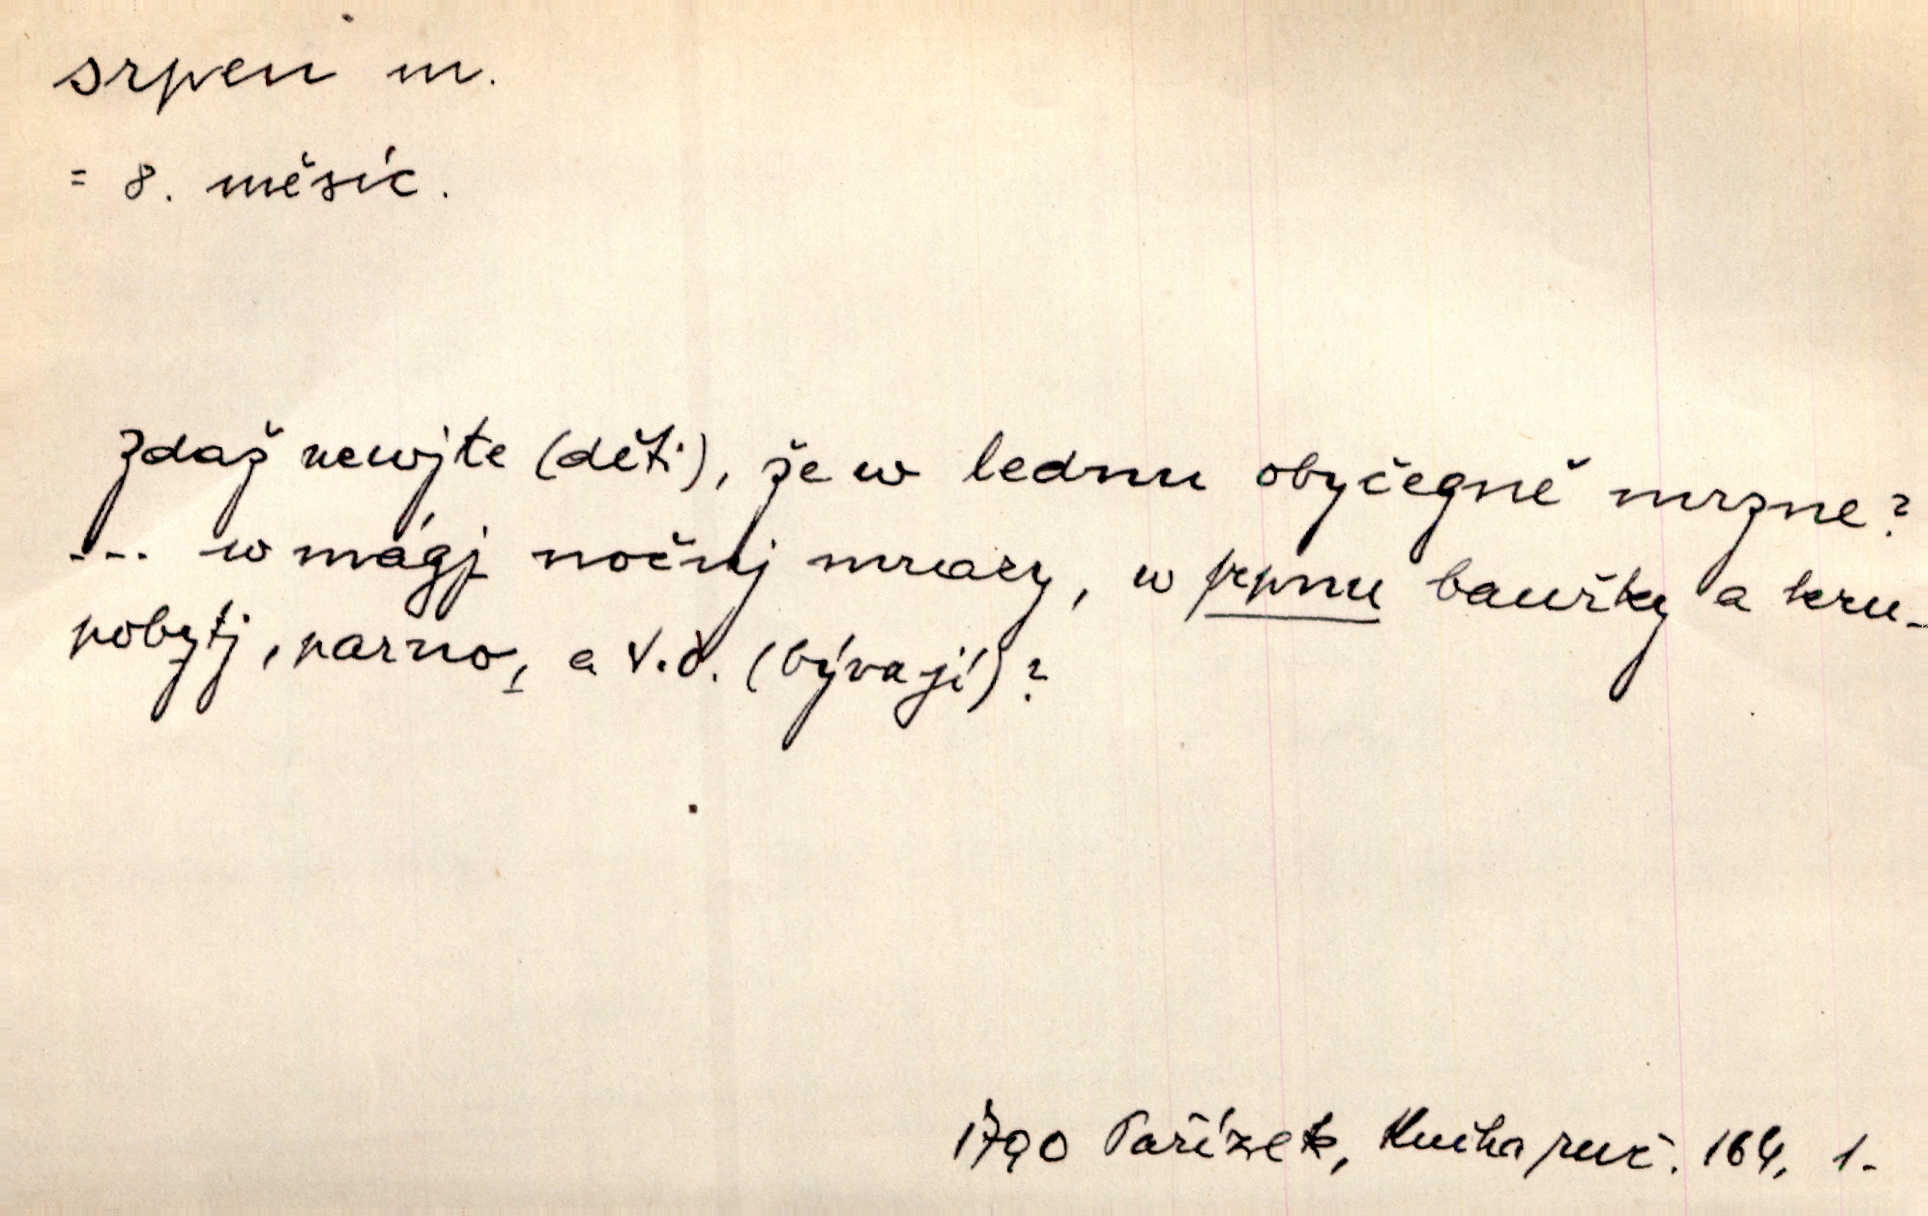 srpen m.
= 8. měsíc.
Zdaž newjte (děti), že w lednu obyčegně mrzne?
--- w mágj nočnj mrazy, w srpnu bauřky a kru-
pobytj, parno, a t.d. (bývají)?
1790 Pařízek, Kniha ruč. 164, 1.